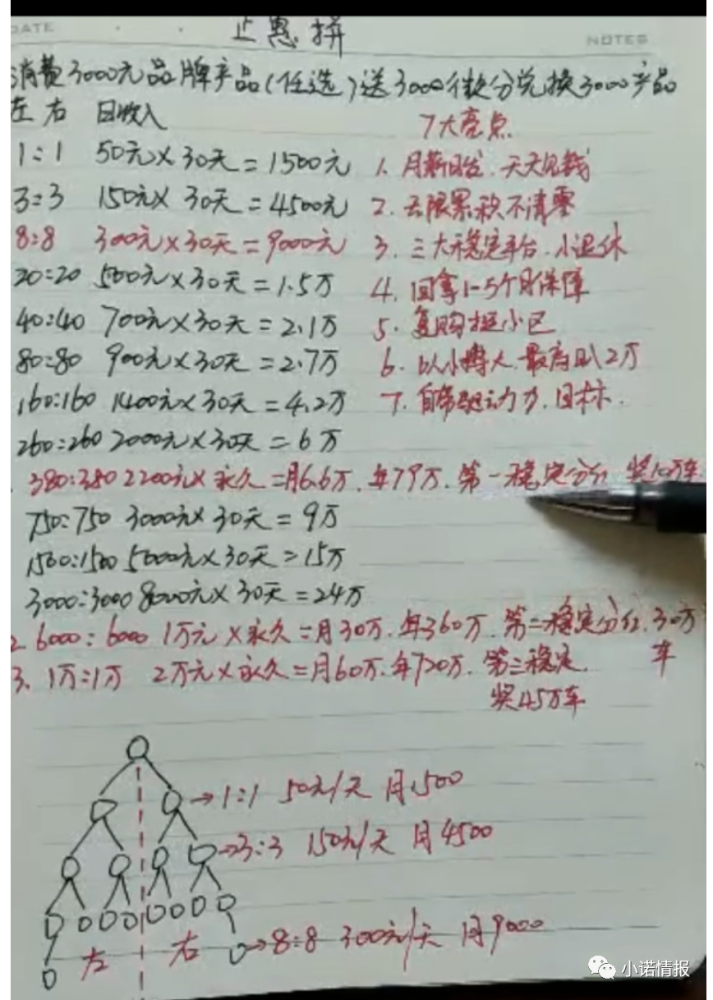 DATE
NOTES
正惠拼
消费3000元品牌产品(任选)送3000微分兑换3000产品
左 右 日收入
1:1 50元×30天=1500元
3:3 150元×30天=4500元
8:8 300元×30天=9000元
20:20 500元×30天=1.5万
40:40 700元×30天=2.1万
80:80 900元×30天=2.7万
160:160 1400元×30天=4.2万
260:260 2000元×30天=6万
380:380 2200元×永久=月6.6万.年79万.第一稳定分红 奖10万车
750:750 3000元×30天=9万
1500:1500 5000元×30天=15万
3000:3000 8000元×30天=24万
2. 6000:6000 1万元×永久=月30万.年360万.第二稳定分红.30万车
3. 1万:1万 2万元×永久=月60万.年720万.第三稳定.
奖45万车
7大亮点
1. 月薪日发.天天见钱
2. 无限累积不清零
3. 三大稳定平台.小退休
4. 回拿1-5个月保障
5. 复购挂小区
6. 以小博大.最高日2万
7. 自带驱动力.目标.
→1:1 50元/天 月1500
→3:3 150元/天 月4500
左 右 →8:8 300元/天 月9000
小诺情报